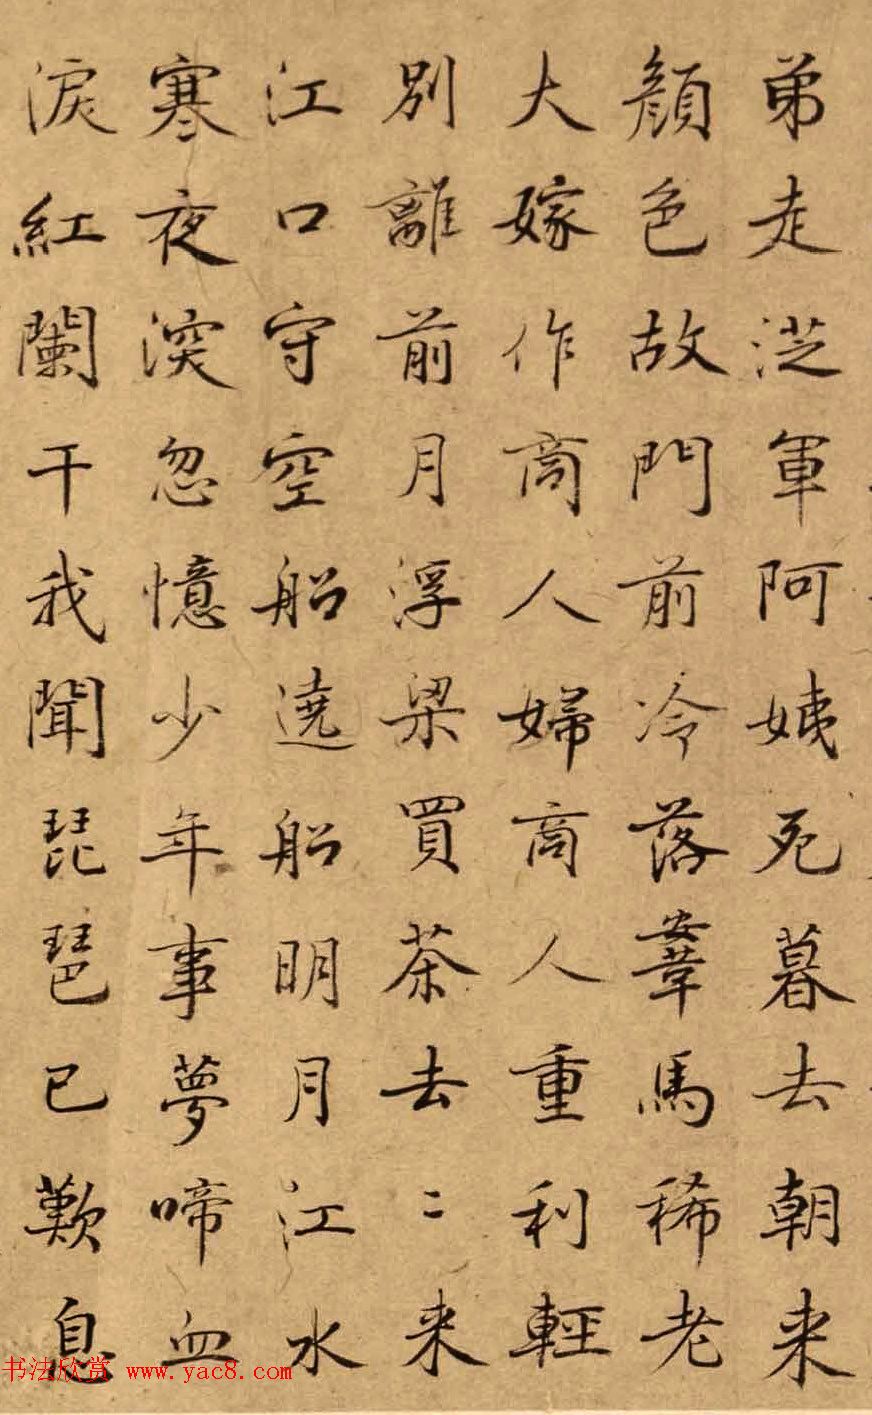 弟走從軍阿姨死暮去朝来
顔色故門前冷落鞌馬稀老
大嫁作商人婦商人重利輕
別離前月浮梁買茶去〻来
江口守空船遶船明月江水
寒夜深忽憶少年事夢啼血
淚紅闌干我聞琵琶已歎息
书法欣赏 www.yac8.com